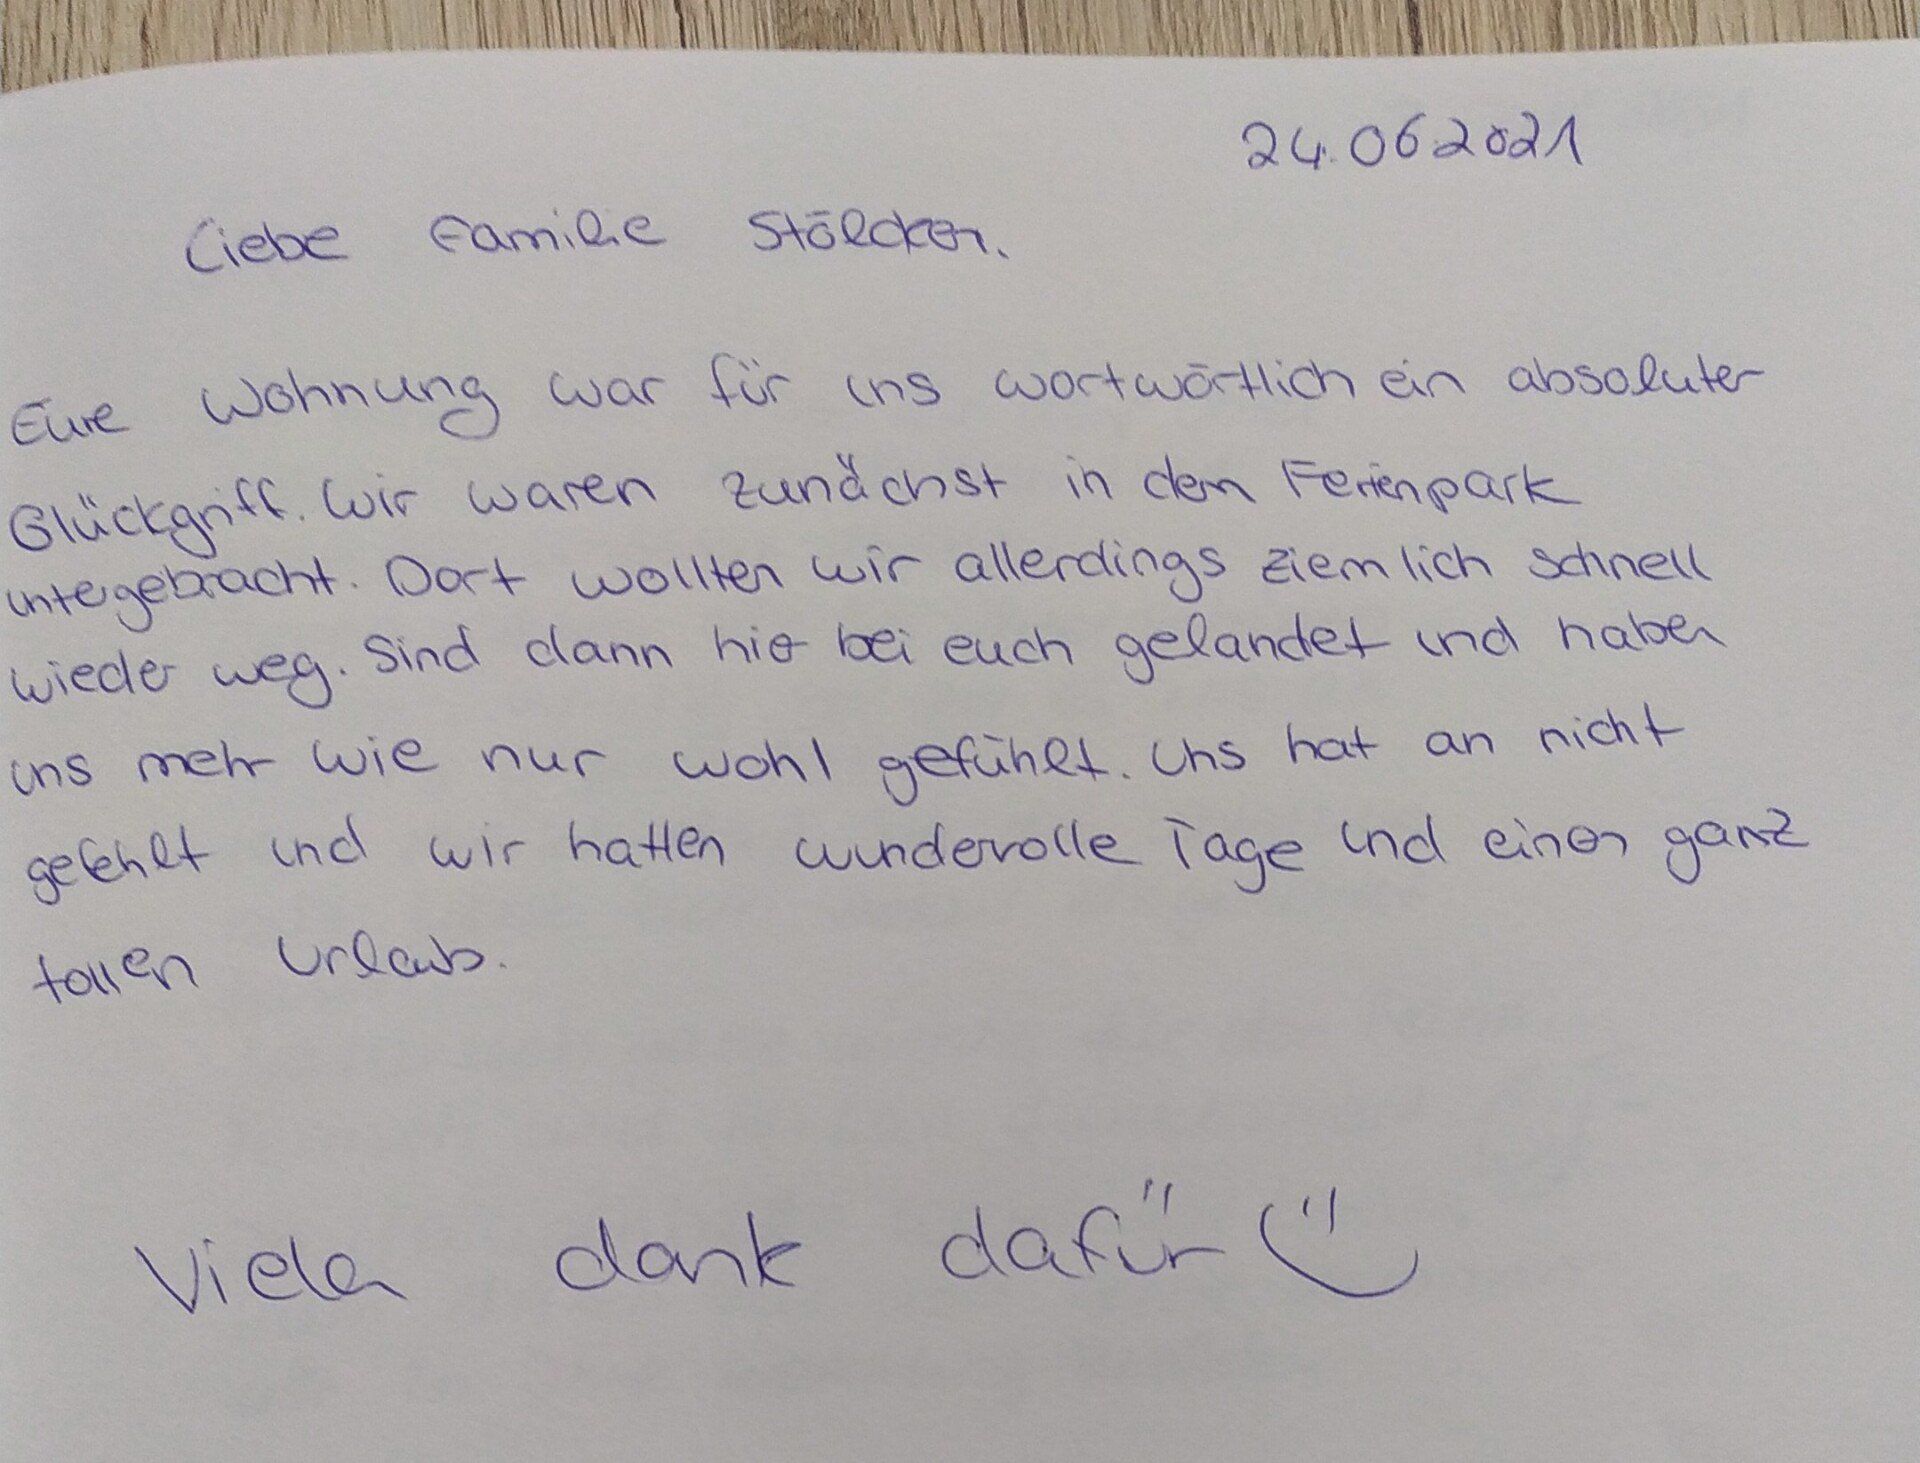 24.06.2021
Liebe Familie Stölcker.
Eure Wohnung war für uns wortwörtlich ein absoluter
Glückgriff. Wir waren zunächst in dem Ferienpark
untergebracht. Dort wollten wir allerdings ziemlich schnell
wieder weg. Sind dann hier bei euch gelandet und haben
uns mehr wie nur wohl gefühlt. Uns hat an nicht
gefehlt und wir hatten wundervolle Tage und einen ganz
tollen Urlaub.
Vielen dank dafür